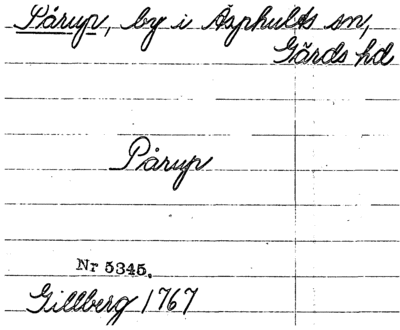 Pårup, by i Äsphults sn,
Gärds hd
Pårup
Nr 5345.
Gillberg 1767